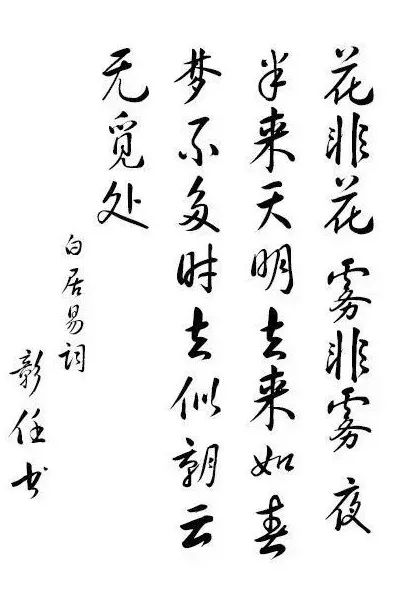 花非花雾非雾夜
半来天明去来如春
梦不多时去似朝云
无觅处
白居易词
彰任书